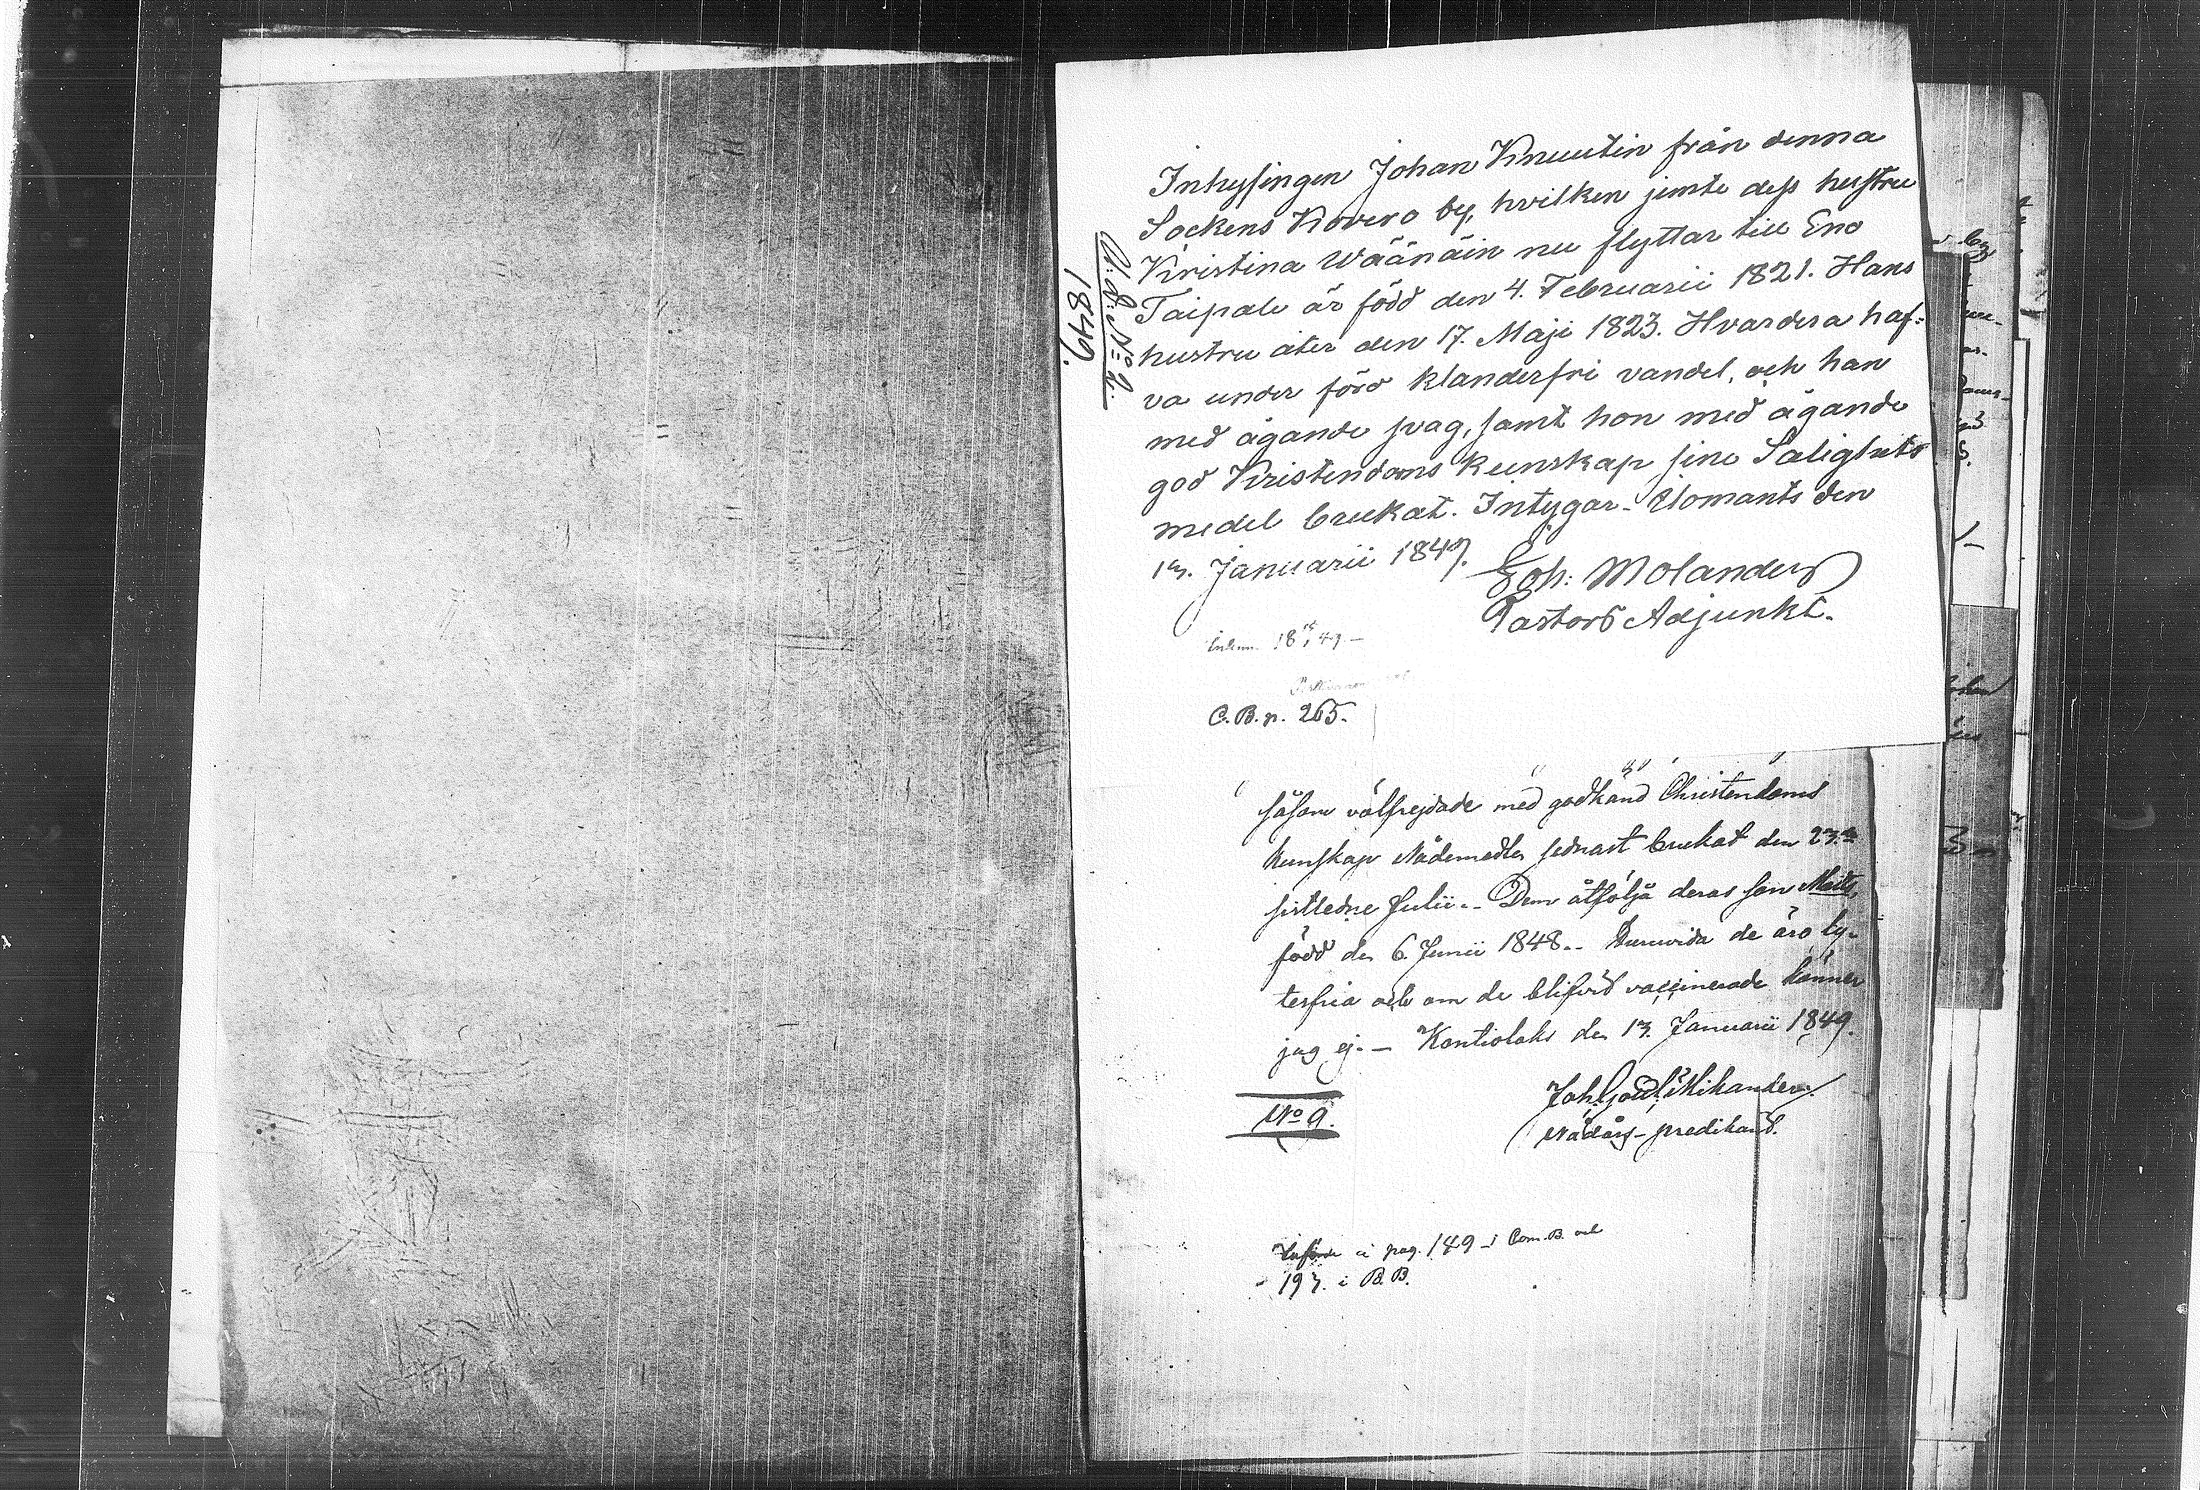 Inhysingen Johan Knuutin från denna
Sockens Kovero by, hvilken jemte dess hustru
Kristina Wäänäin nu flyttar till Eno
Taipale är född den 4. Februarii 1821. Hans
hustru åter den 17. Maji 1823. Hvardera haf=
va under förd klanderfri vandel, och han
med ägande svag, samt hon med ägande
god Kristendoms kunskap sine Salighets
medel brukat. Intygar_ Ilomants den
Januarii 1849.
Joh: Molander
Pastors Adjunkt.
1849.
C. B. p. 265.
såsom välfrejdade med godkänd Christendoms
kunskap Nådemedlen sednast brukat den 23.
sistledne Julii.. Dem åtfölja deras son Matts,
född den 6. Junii 1848.. Huruvida de äro ly-
tesfria och om de blifvit vaccinerade känner
jag ej. — Kontiolaks den 13. Januarii 1849.
No 9.
Nådårs-predikant.
Införde å pag. 149 i Com. B. och
193. i B. B.